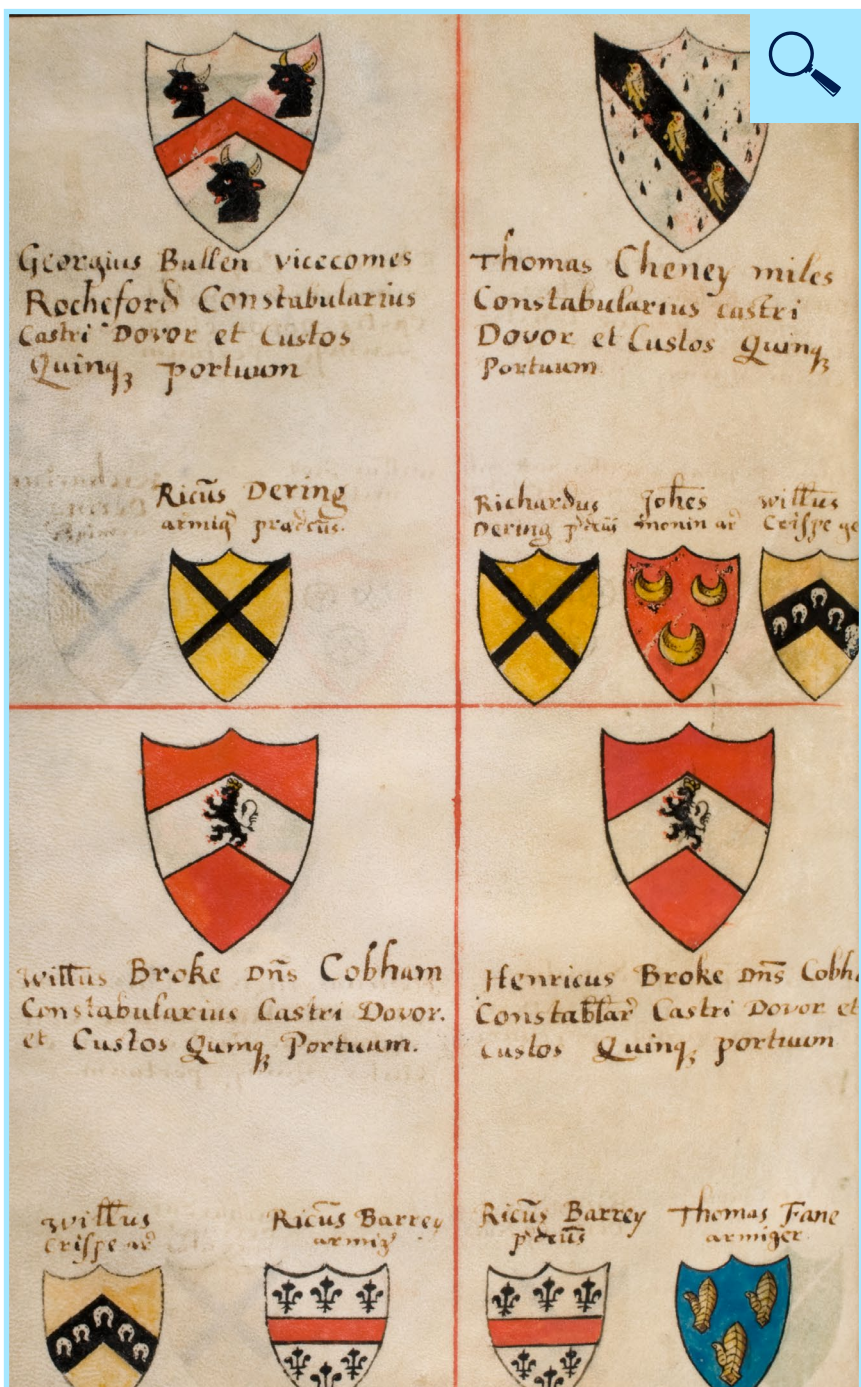 Georgius Bullen vicecomes
Rocheford Constabularius
Castri Dovor et Custos
Quinqꝫ portuum
Ricūs Dering
armigʳ pradcūs.
Thomas Cheney miles
Constabularius castri
Dovor et Custos Quinqꝫ
Portuum
Richardus
Dering pʳdcūs
Johēs
monin ar̃
willūs
Crispe ge
willūs Broke Dn̄s Cobham
Constabularius Castri Dovor.
et Custos Quinqꝫ Portuum.
willūs
Crispe ar̃
Ricūs Barrey
armigʳ
Henricus Broke Dm̄s Cobh
Constabllar̃ Castri Dovor et
Custos Quinqꝫ portuum
Ricūs Barrey
pʳdcūs
Thomas Fane
armiger.